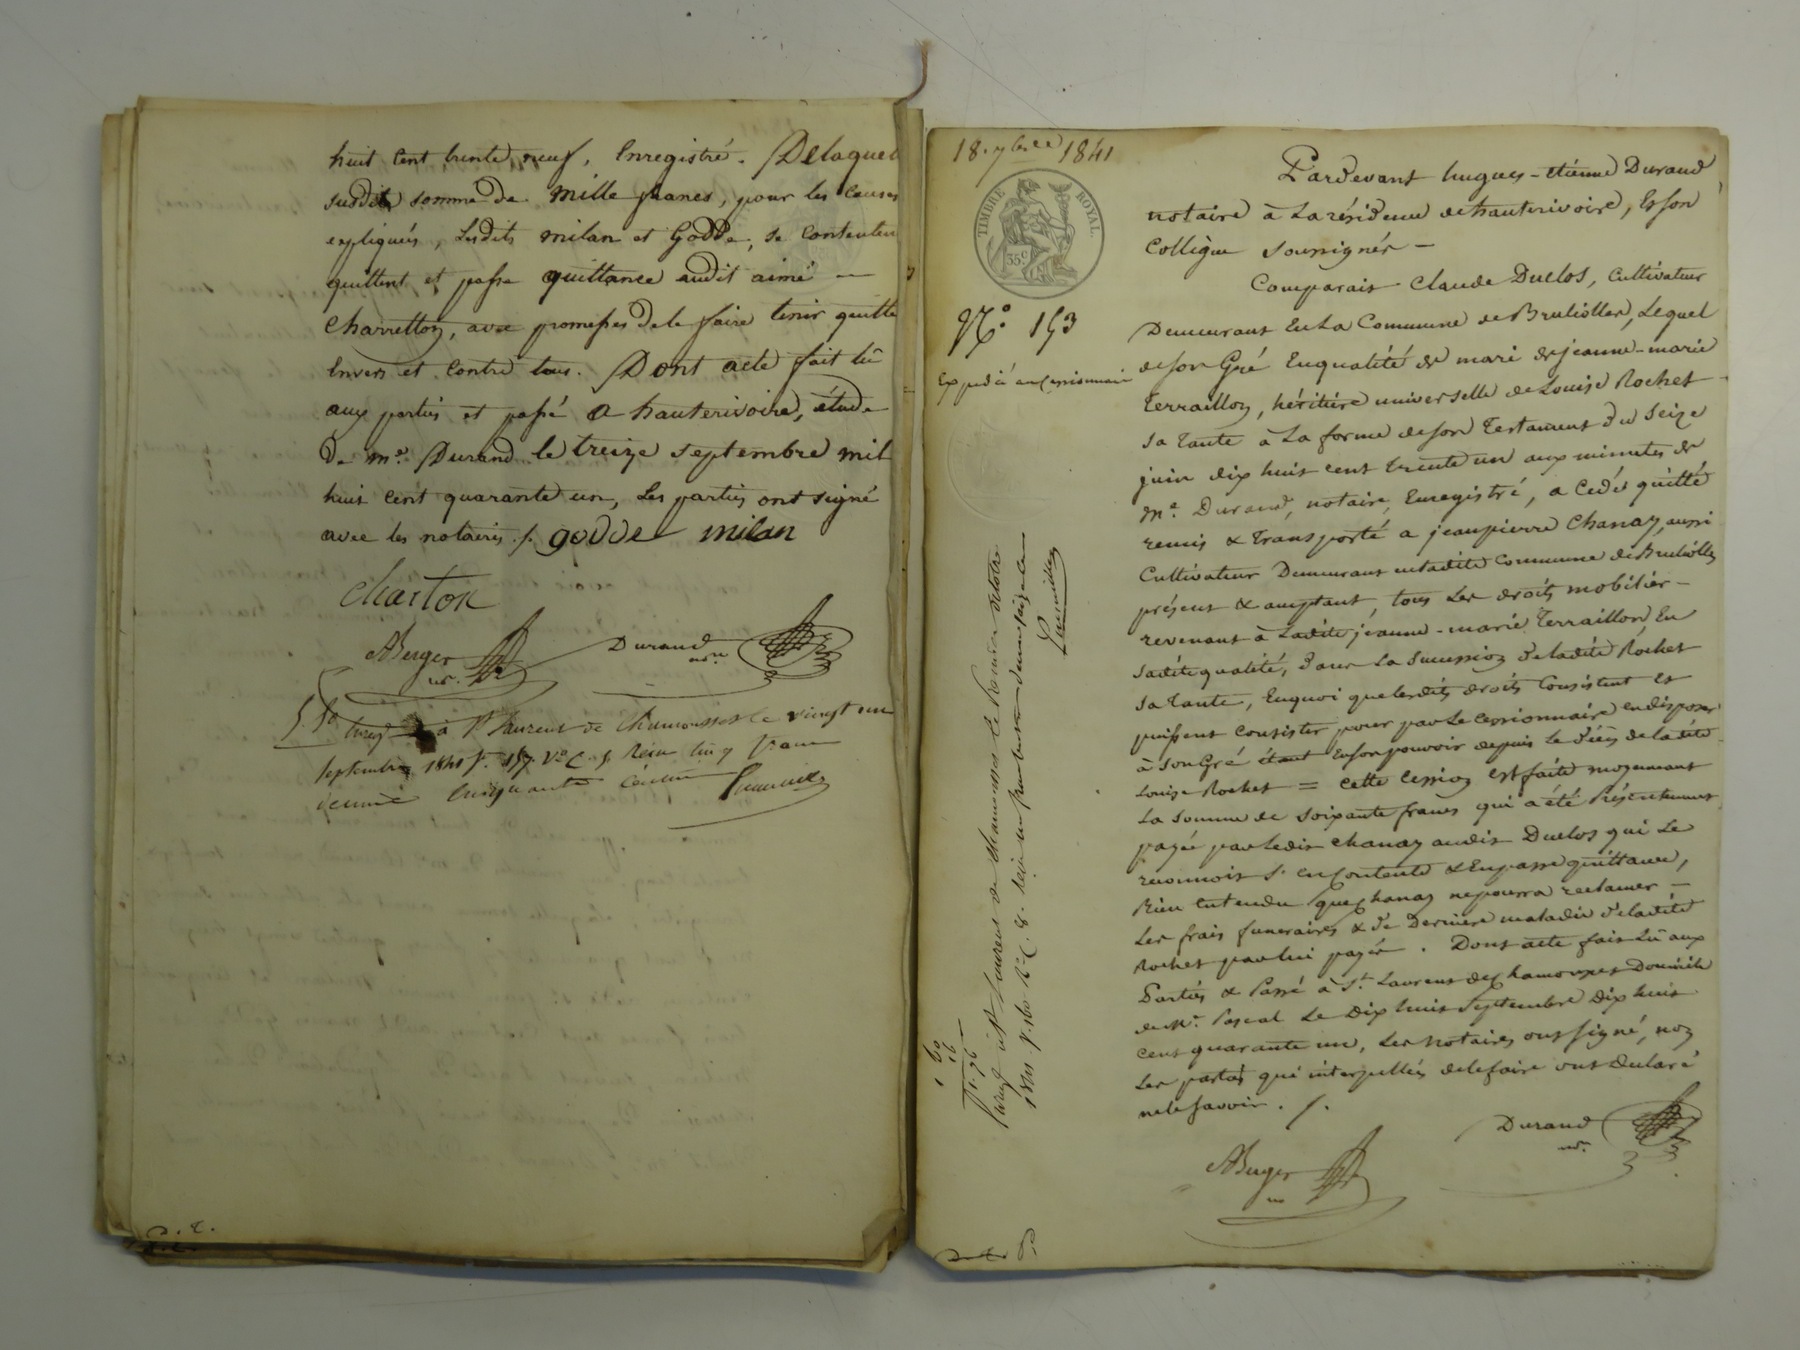 huit Cent trente neuf, Enregistré. De laquelle
susdite somme de mille francs, pour les causes
expliqués, Lesdits milan et Godde, se contentent
quittent et passe quittance audit aimé —
Charretton, avec promesses de le faire tenir quitte
Envers et Contre tous. Dont acte fait lû
aux parties et passé a hauterivoire, étude
De me. Durand le treize septembre mil
huit Cent quarante un, Les parties ont signé
avec les notaires ./. godde milan
Charton
ABerger
nre.
Durand
nre
à St Laurent de Chamousset le vingt un
septembre 1841 fo. 157 Vo C. 5 Reçu cinq francs
decime cinquante centimes
D. C.
18. 7bre 1841
TIMBRE ROYAL.
35c
No. 153
Expédié au Cessionnaire
Pardevant hugues-étienne Durand
notaire à La résidence de hauterivoire, & son
Collègue soussignés —
Comparait Claude Duclos, Cultivateur
Demeurant En La Commune de Brulliolles, Lequel
de son Gré En qualité de mari de jeanne-marie
Terraillon, héritière universelle de Louise Rochet
sa Tante à La forme de son Testament du Seize
juin dix huit cent trente un aux minutes de
Me. Durand, notaire, Enregistré, a Cédé quitté
remis & Transporté a jean pierre Chanay, aussi
Cultivateur Demeurant en ladite Commune de Brulliolles
présent & acceptant, tous Les droits mobilier —
revenant à Ladite jeanne-marie Terraillon, En
sadite qualité, dans La Succession de ladite Rochet
sa Tante, En quoi que lesdits droits Consistent et
puissent Consister pour par Le Cessionnaire en disposer
à Son Gré étant En son pouvoir depuis Le décès de ladite
Louise Rochet = Cette Cession est faite moyennant
La Somme de Soixante francs qui a été Présentement
payée par Ledit Chanay audit Duclos qui Le
reconnoit s'en Contente & En passe quittance,
Bien Entendu que Chanay ne pourra réclamer —
Les frais funeraires & de Derniere maladie de ladite
Rochet par lui payés. Dont acte fait Lû aux
Parties & Passé à St. Laurent de Chamousset Domicile
de Mr. Pascal Le Dix huit Septembre Dix huit
Cent quarante un, Les Notaires ont Signé, non
Les parties qui interpellées de le faire ont Déclaré
ne le Savoir ./.
Durand
nre.
ABerger
nre
à St Laurent de Chamousset Le
1841 fo. 160 Ro C. 8. Reçu un franc
1 60
16
1. 76